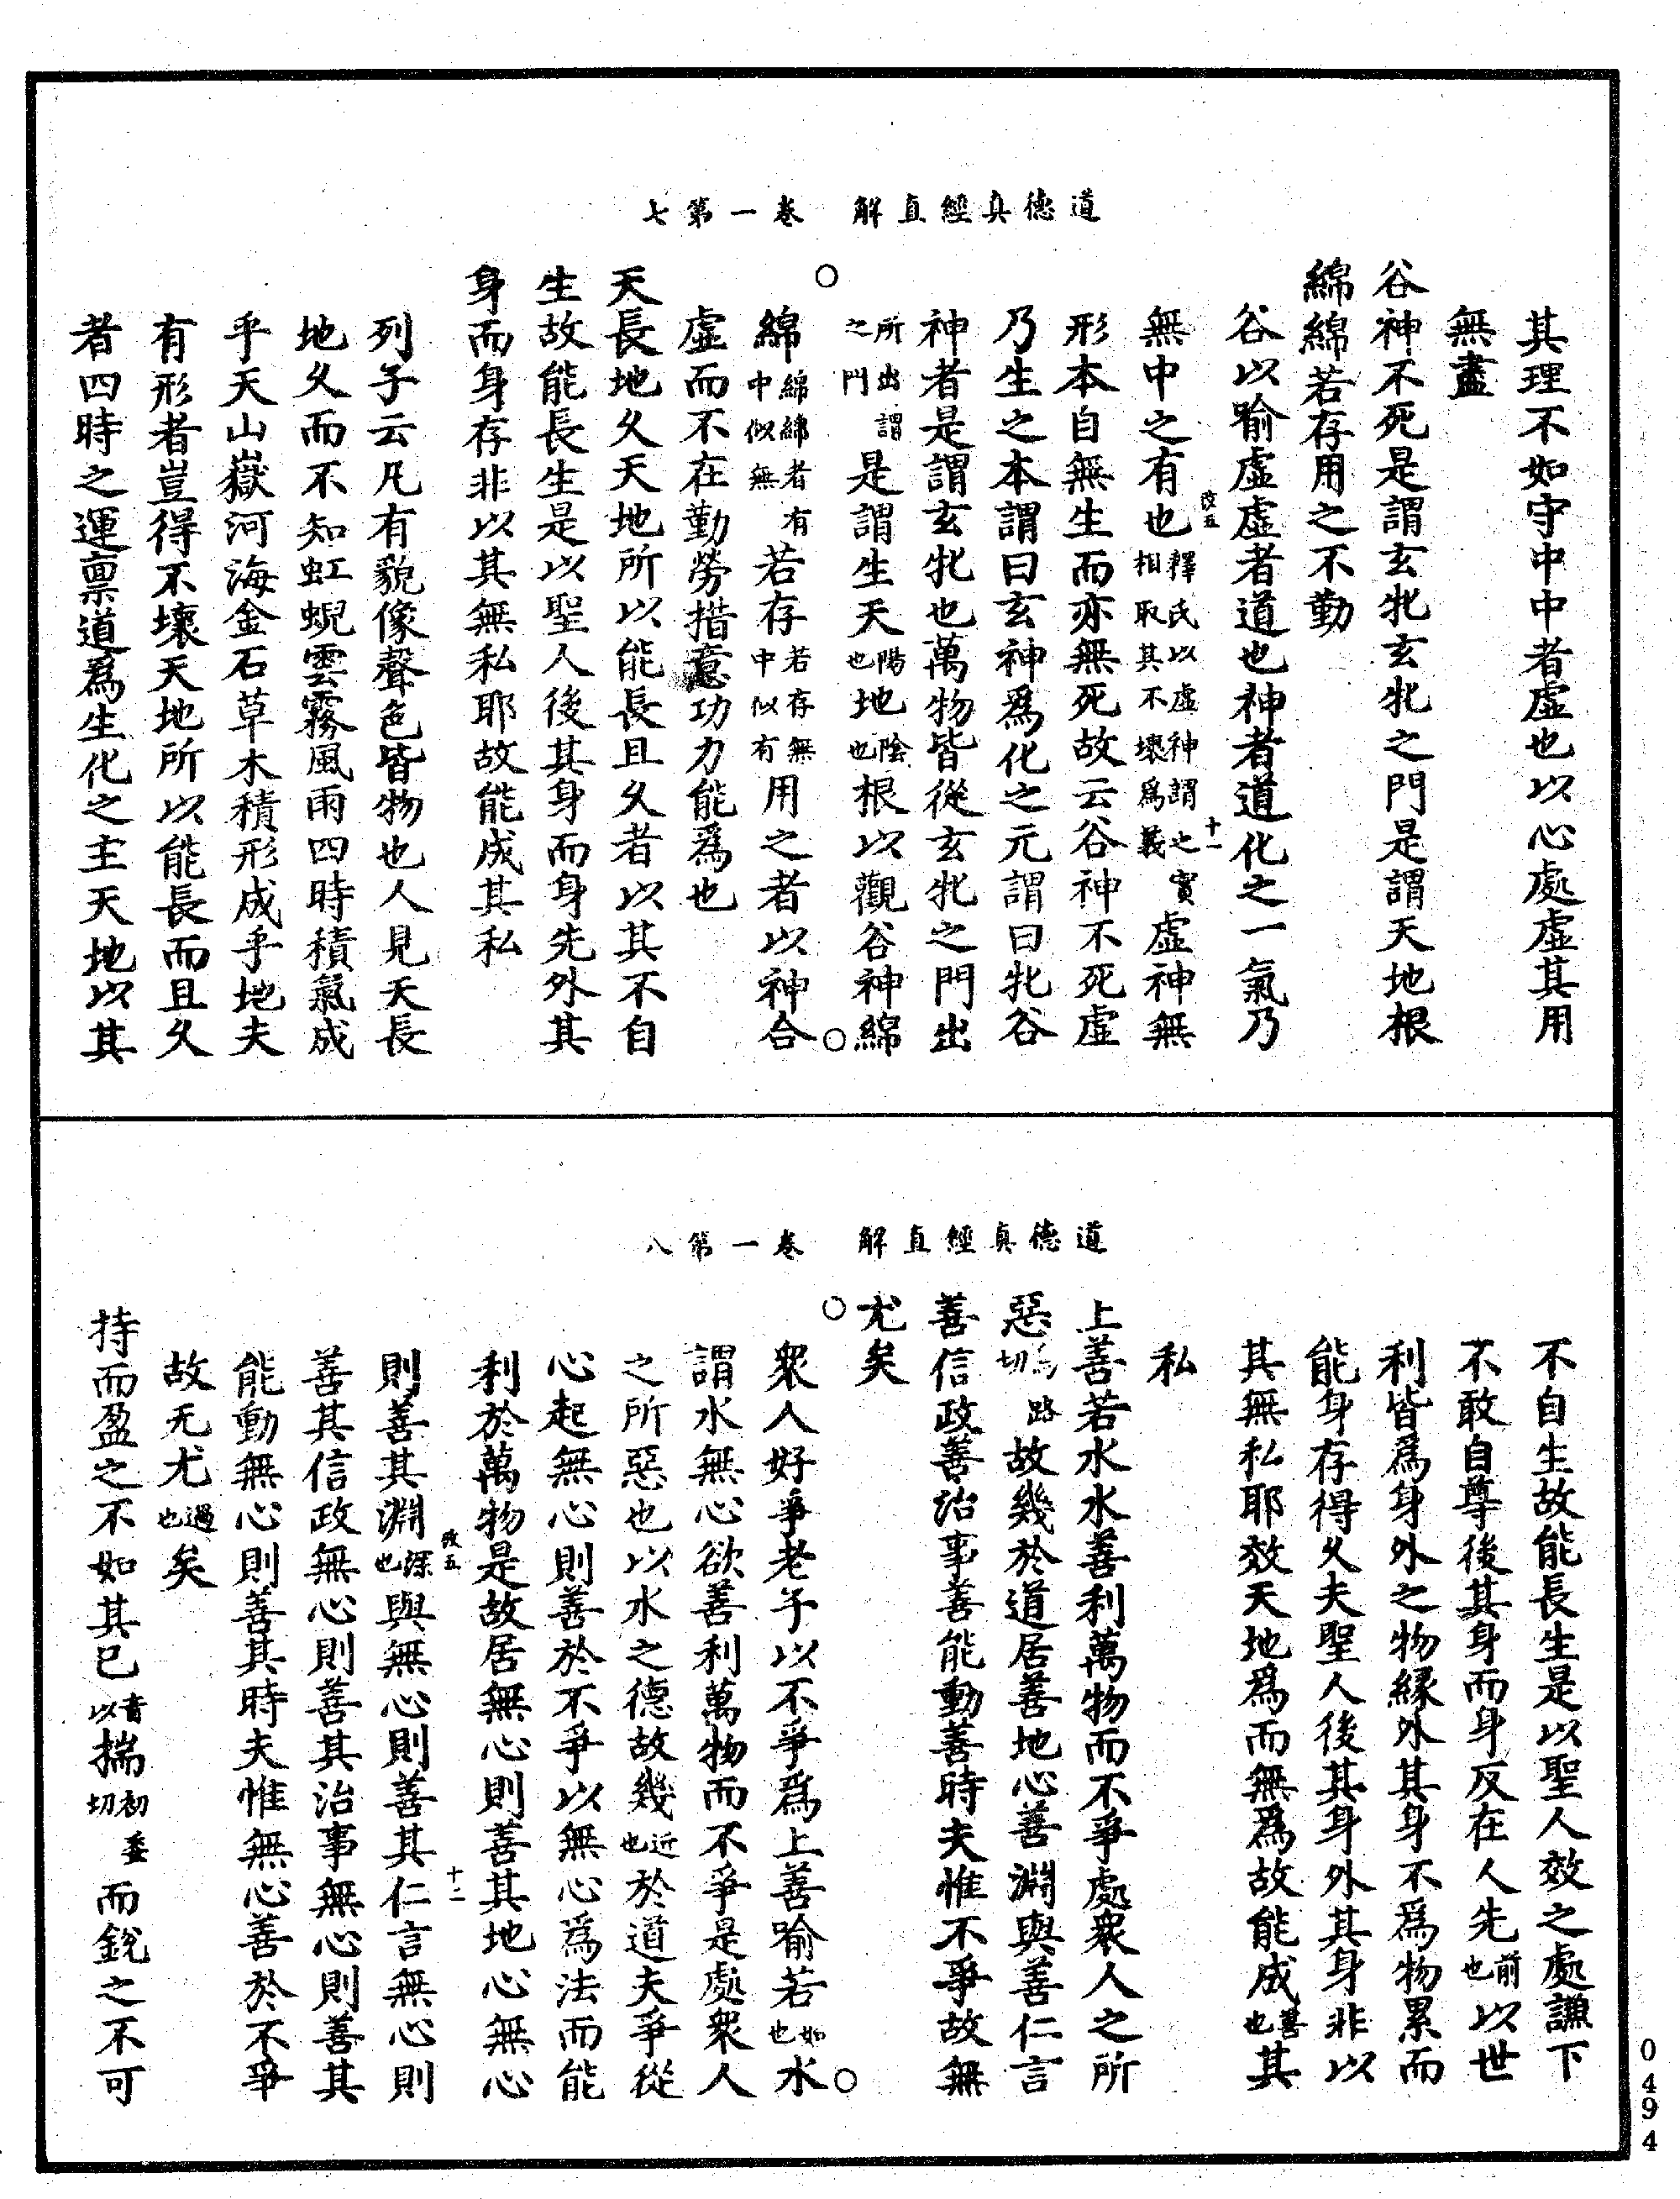 道德真經直解　卷一第七
其理不如守中中者虛也以心處虛其用
無盡
谷神不死是謂玄牝玄牝之門是謂天地根
綿綿若存用之不勤
谷以喻虛虛者道也神者道化之一氣乃
改五　十一
無中之有也釋氏以虛神謂之實相取其不壞爲義虛神無
形本自無生而亦無死故云谷神不死虛
乃生之本謂曰玄神爲化之元謂曰牝谷
神者是謂玄牝也萬物皆從玄牝之門出
所出謂之門是謂生天陽也地陰也根以觀谷神綿
○　○
綿綿綿者有中似無若存若存無中似有用之者以神合
虛而不在勤勞措意功力能爲也
天長地久天地所以能長且久者以其不自
生故能長生是以聖人後其身而身先外其
身而身存非以其無私耶故能成其私
列子云凡有貌像聲色皆物也人見天長
地久而不知虹蜺雲霧風雨四時積氣成
乎天山嶽河海金石草木積形成乎地夫
有形者豈得不壞天地所以能長而且久
者四時之運禀道爲生化之主天地以其
道德真經直解　卷一第八
不自生故能長生是以聖人效之處謙下
不敢自尊後其身而身反在人先前也以世
利皆爲身外之物緣外其身不爲物累而
能身存得久夫聖人後其身外其身非以
其無私耶效天地爲而無爲故能成善也其
私
上善若水水善利萬物而不爭處衆人之所
惡烏路切故幾於道居善地心善淵與善仁言
善信政善治事善能動善時夫惟不爭故無
尤矣
○　○
衆人好爭老子以不爭爲上善喻若如也水
謂水無心欲善利萬物而不爭是處衆人
之所惡也以水之德故幾近也於道夫爭從
心起無心則善於不爭以無心爲法而能
利於萬物是故居無心則善其地心無心
改五　十二
則善其淵深也與無心則善其仁言無心則
善其信政無心則善其治事無心則善其
能動無心則善其時夫惟無心善於不爭
故无尤過也矣
持而盈之不如其已音以揣初委切而銳之不可
0494